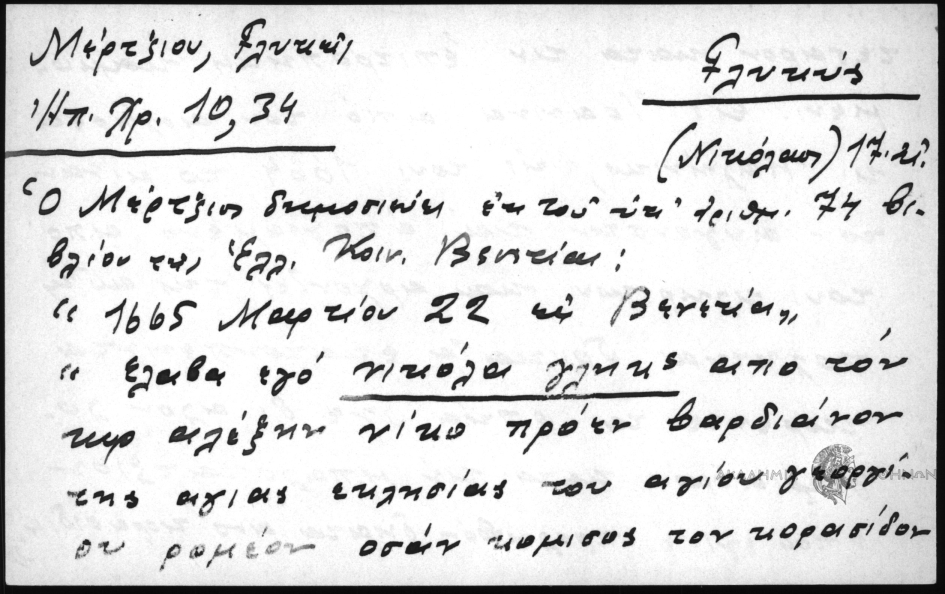 Μέρτζιου, Γλυκεῖς
Γλυκύς
Ἠπ. Χρ. 10, 34
(Νικόλαος) 17. αἰ.
Ὁ Μέρτζιος δημοσιεύει ἐκ τοῦ ὑπ' ἀριθμ. 74 βι-
βλίου της Ἑλλ. Κοιν. Βενετίας:
“ 1665 Μαρτίου 22 Βενετία„
“ έλαβα εγό νικόλα γληκης απο τόν
κυρ αλέξην νίκο πρόην βαρδιάνον
της αγιας εκλησίας του αγίου γεοργί-
ου ρομέον οσάν κομισος τον κορασίδον